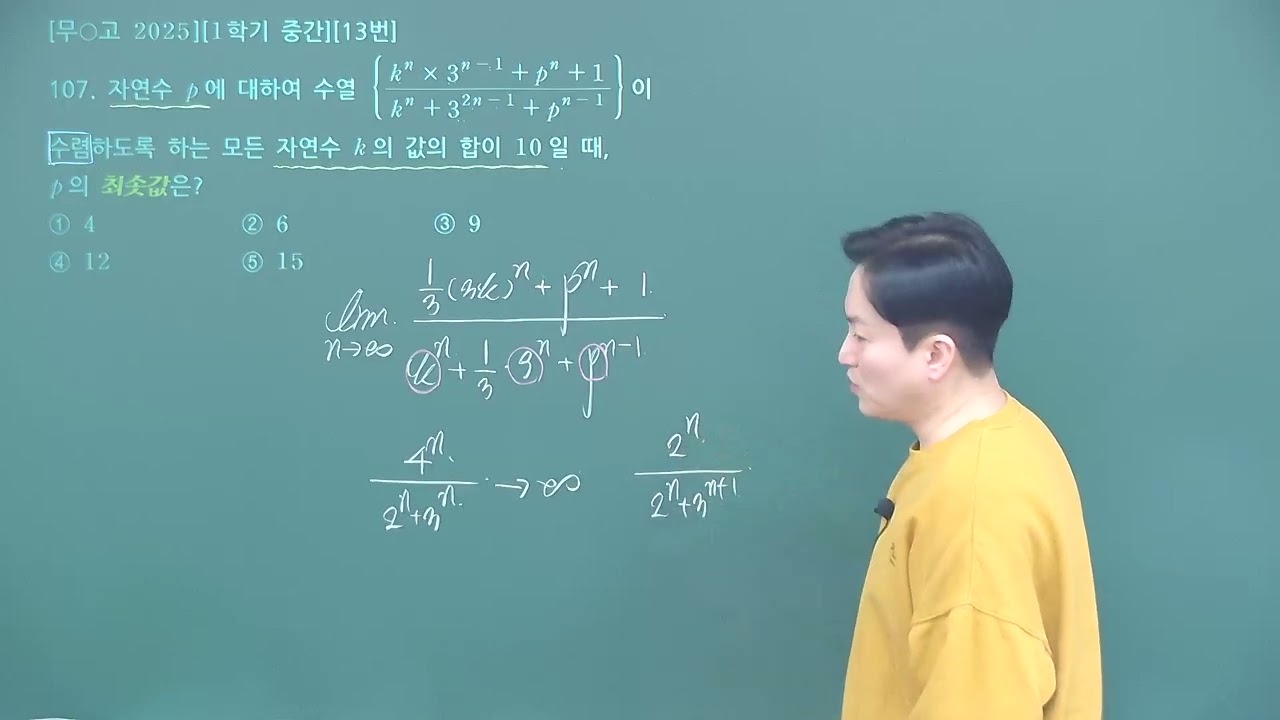 [무○고 2025][1학기 중간][13번]
107. 자연수 p에 대하여 수열 {(kⁿ × 3ⁿ⁻¹ + pⁿ + 1)/(kⁿ + 3²ⁿ⁻¹ + pⁿ⁻¹)}이
수렴하도록 하는 모든 자연수 k의 값의 합이 10일 때,
p의 최솟값은?
① 4 ② 6 ③ 9
④ 12 ⑤ 15
lim n→∞ (1/3 (3k)ⁿ + pⁿ + 1)/(kⁿ + 1/3 · 9ⁿ + pⁿ⁻¹)
4ⁿ/(2ⁿ+3ⁿ) → ∞ 2ⁿ/(2ⁿ+3ⁿ⁺¹)